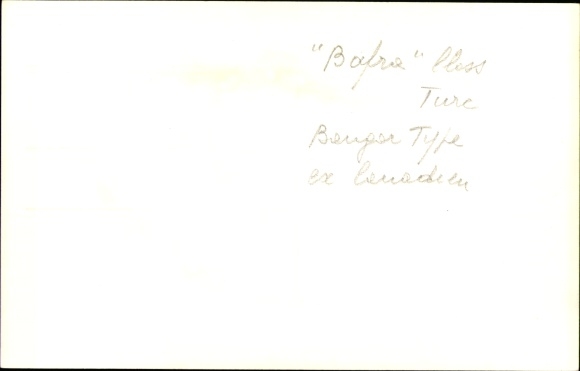 "Bafra" Class
Turc
Bangor Type
ex Canadien